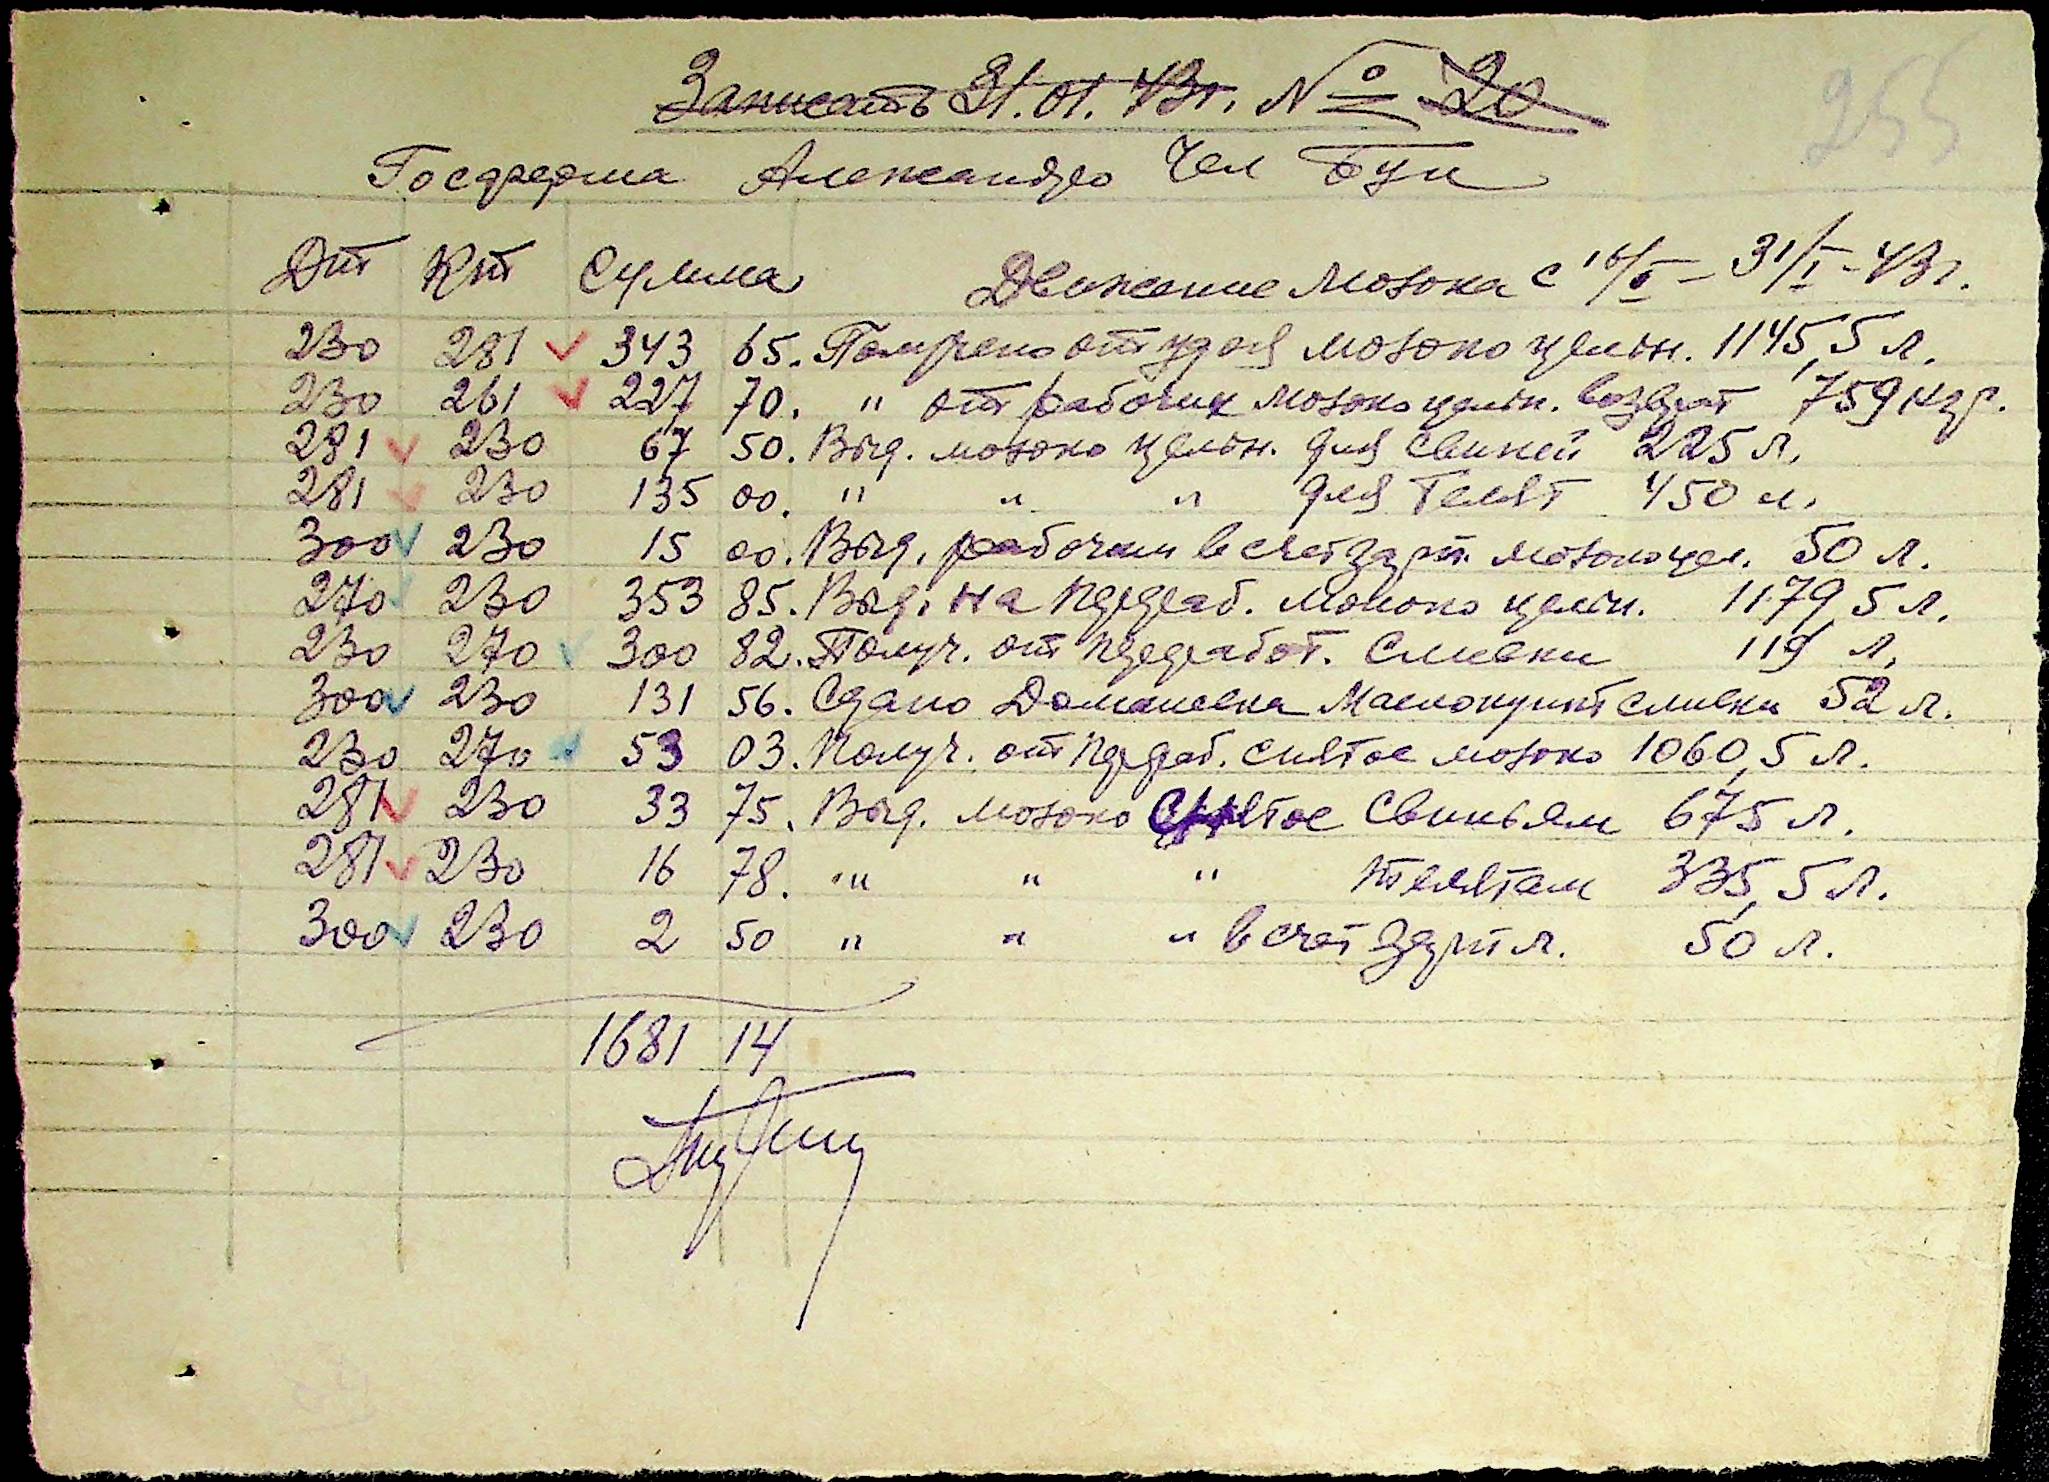 255
Записать 31.01.43г. № 20
Госферма Александро Чел Бун
Дт Кт Сумма Движение молока с 16/I – 31/I – 43г.
230 281 343 65. Получено от удоя молоко цельн. 1145,5 л.
230 261 227 70. " от рабочих молоко цельн. возврат 759
281 230 67 50. Выд. молоко цельн. для свиней 225 л.
281 230 135 00. " " " для телят 450 л.
300 230 15 00. Выд. рабочим в счет зарп. молоко цел. 50 л.
270 230 353 85. Выд. на перераб. молоко цельн. 1179,5 л.
230 270 300 82. Получ. от переработ. сливки 119 л.
300 230 131 56. Сдано Доманевка Маслопункт сливки 52 л.
230 270 53 03. Получ. от перераб. снятое молоко 1060,5 л.
281 230 33 75. Выд. молоко снятое свиньям 675 л.
281 230 16 78. " " " телятам 335,5 л.
300 230 2 50 " " " в счет зарпл. 50 л.
1681 14